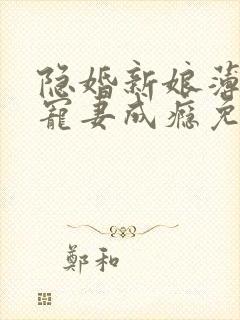 隐婚新娘薄
宠妻成瘾免
鄭和